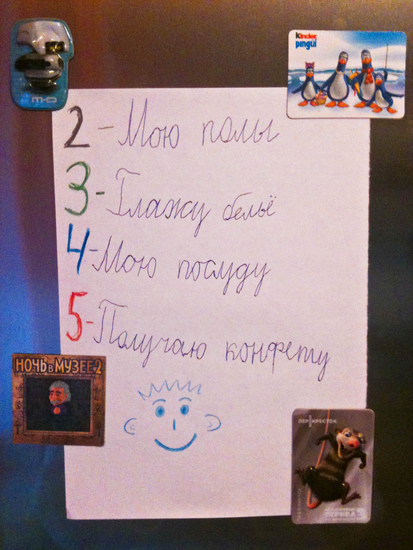 Kinder
pingui
2-Мою полы
3-Глажу бельё
4-Мою посуду
5-Получаю конфету
НОЧЬ В МУЗЕЕ 2
ПЕРЕКРЕСТОК